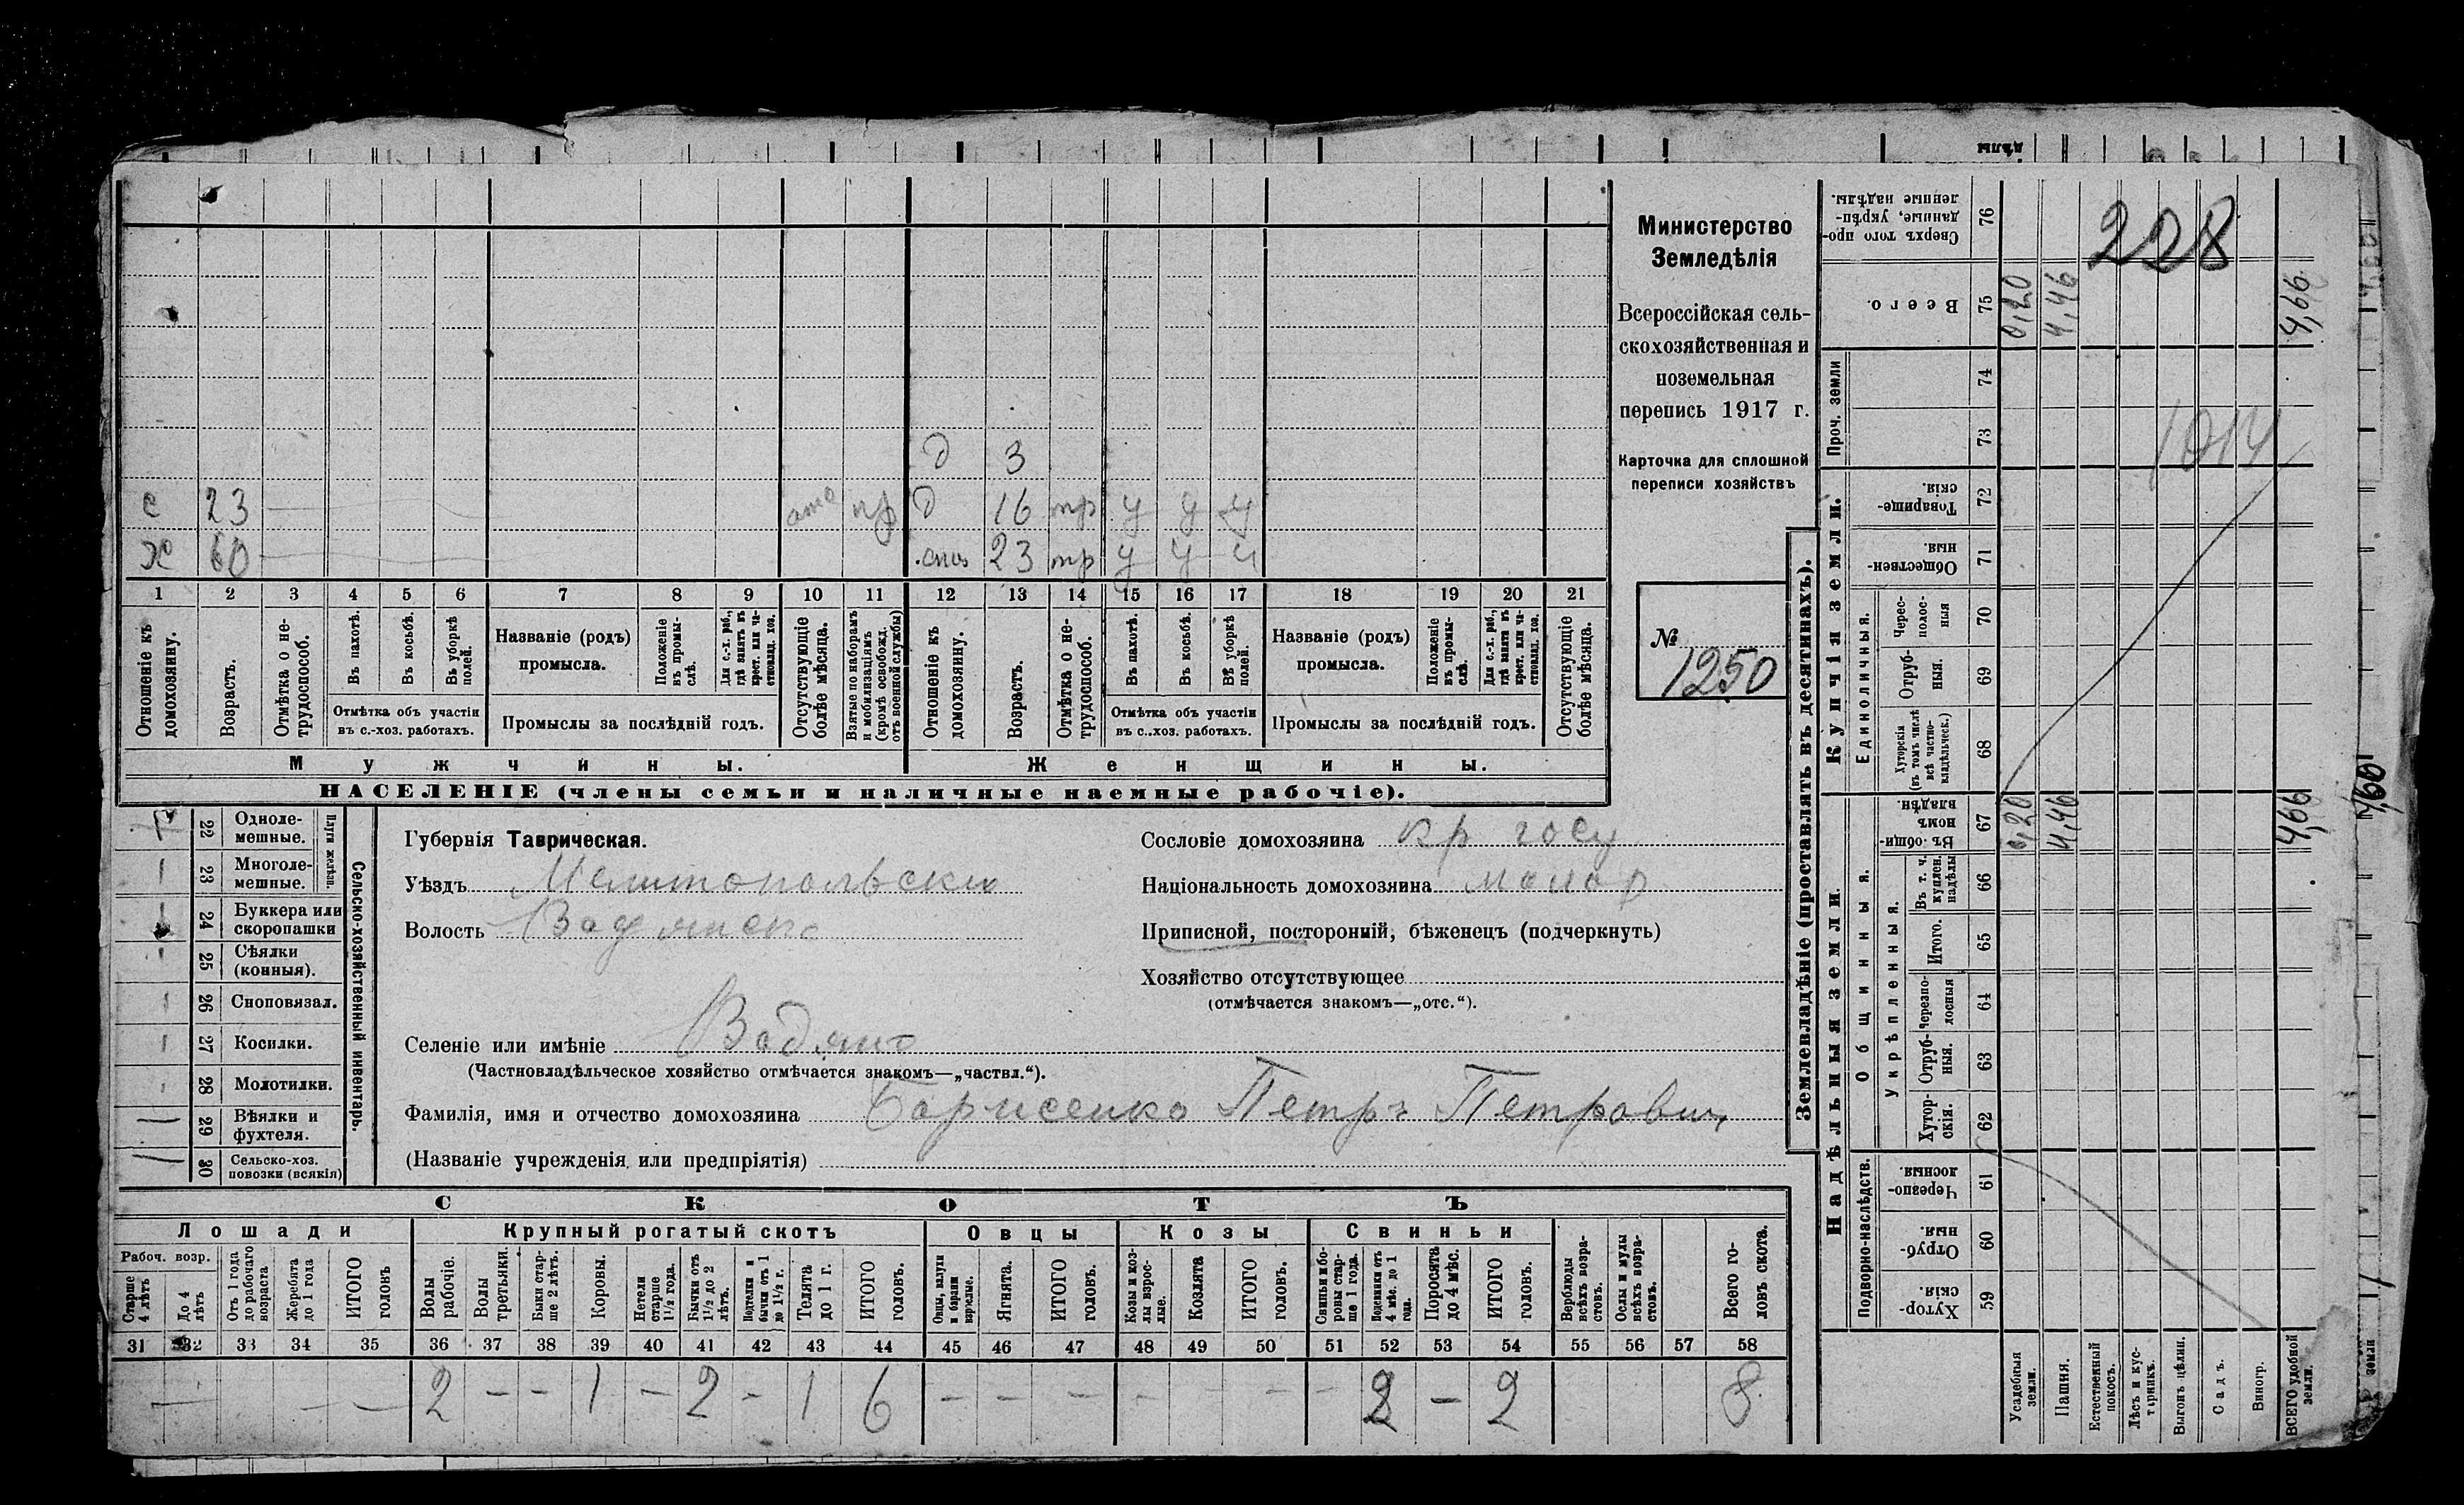 Министерство
Земледѣлія
Всероссійская сель-
скохозяйственная и
поземельная
перепись 1917 г.
Карточка для сплошной
переписи хозяйствъ
№
1250
д 3
с 23 отс пр д 16 тр у у у
х 60 сна 23 тр у у у
1 2 3 4 5 6 7 8 9 10 11 12 13 14 15 16 17 18 19 20 21
Отношеніе къ домохозяину.
Возрастъ.
Отмѣтка о не-трудоспособ.
Въ пахотѣ.
Въ косьбѣ.
Въ уборкѣ полей.
Отмѣтка объ участіи
въ с.-хоз. работахъ.
Названіе (родъ)
промысла.
Положеніе въ промы-слѣ.
Для с.-х. раб., гдѣ занятъ въ крест. или ча-стновлад. хоз.
Промыслы за послѣдній годъ.
Отсутствующіе болѣе мѣсяца.
Взятые по наборамъ и мобилизаціямъ (кромѣ освобожд. отъ военной службы)
Отношеніе къ домохозяину.
Возрастъ.
Отмѣтка о не-трудоспособ.
Въ пахотѣ.
Въ косьбѣ.
Въ уборкѣ полей.
Отмѣтка объ участіи
въ с.-хоз. работахъ.
Названіе (родъ)
промысла.
Положеніе въ промы-слѣ.
Для с.-х. раб., гдѣ занята въ крест. или ча-стновлад. хоз.
Промыслы за послѣдній годъ.
Отсутствующіе болѣе мѣсяца.
Мужчины. Женщины.
НАСЕЛЕНІЕ (члены семьи и наличные наемные рабочіе).
22 Одноле-мешные.
23 Многоле-мешные.
Плуги желѣзн.
24 Буккера или скоропашки
25 Сѣялки (конныя).
26 Сноповязал.
27 Косилки.
28 Молотилки.
29 Вѣялки и фухтеля.
30 Сельско-хоз. повозки (всякія)
Сельско-хозяйственный инвентарь.
Губернія Таврическая.
Уѣздъ Мелитопольски
Волость Водянско
Селеніе или имѣніе Водяно
(Частновладѣльческое хозяйство отмѣчается знакомъ—„частвл.“).
Фамилія, имя и отчество домохозяина Борисенко Петръ Петрович
(Названіе учрежденія или предпріятія)
Сословіе домохозяина кр госу
Національность домохозяина малор
Приписной, посторонній, бѣженецъ (подчеркнуть)
Хозяйство отсутствующее
(отмѣчается знакомъ—„отс.“).
СКОТЪ
Лошади Крупный рогатый скотъ Овцы Козы Свиньи
Рабоч. возр.
Старше 4 лѣтъ
До 4 лѣтъ
Отъ 1 года до рабочаго возраста
Жеребята до 1 года
ИТОГО головъ
Волы рабочіе.
Волы третьяки.
Быки стар-ше 2 лѣтъ.
Коровы.
Нетели старше 1½ года.
Бычки отъ 1½ до 2 лѣтъ.
Подтелки и бычки отъ 1 до 1½ г.
Телята до 1 г.
ИТОГО головъ.
Овцы, валухи и бараны взрослые.
Ягнята.
ИТОГО головъ.
Козы и коз-лы взрос-лые.
Козлята
ИТОГО головъ.
Свиньи и бо-ровы стар-ше 1 года.
Подсвинки отъ 4 мѣс. до 1 года.
Поросята до 4 мѣс.
ИТОГО головъ.
Верблюды всѣхъ возра-стовъ.
Ослы и мулы всѣхъ возра-стовъ.
Всего го-ловъ скота.
31 32 33 34 35 36 37 38 39 40 41 42 43 44 45 46 47 48 49 50 51 52 53 54 55 56 57 58
— — — 2 - - 1 - 2 - 1 6 - - - - - - - 2 - 2 8
Землевладѣніе (проставлять въ десятинахъ).
Надѣльныя земли. Купчія земли.
Проч. земли
Подворно-наслѣдств.
Общинныя.
Укрѣпленныя.
Единоличныя.
Хутор-скія. 59
Отруб-ныя. 60
Черезпо-лосныя. 61
Хутор-скія. 62
Отруб-ныя. 63
Черезпо-лосныя 64
Итого. 65
Въ т. ч. куплен. надѣлы 66
Въ общин-номъ владѣн. 67
Хуторскія (въ томъ числѣ всѣ частно-владѣльческ.) 68
Отруб-ныя. 69
Черес-полос-ныя 70
Обществен-ныя. 71
Товарище-скія. 72
73
74
Всего. 75
Сверхъ того про-данные, укрѣп-ленные надѣлы. 76
Усадебныя земли.
Пашня.
Естественный покосъ.
Лѣсъ и кус-тарникъ.
Выгонъ цѣлин.
Садъ.
Виногр.
ВСЕГО удобной земли.
0,20 4,46 4,66
0,20 4,46 4,66
228
1014
4,66
дѣлы
земли